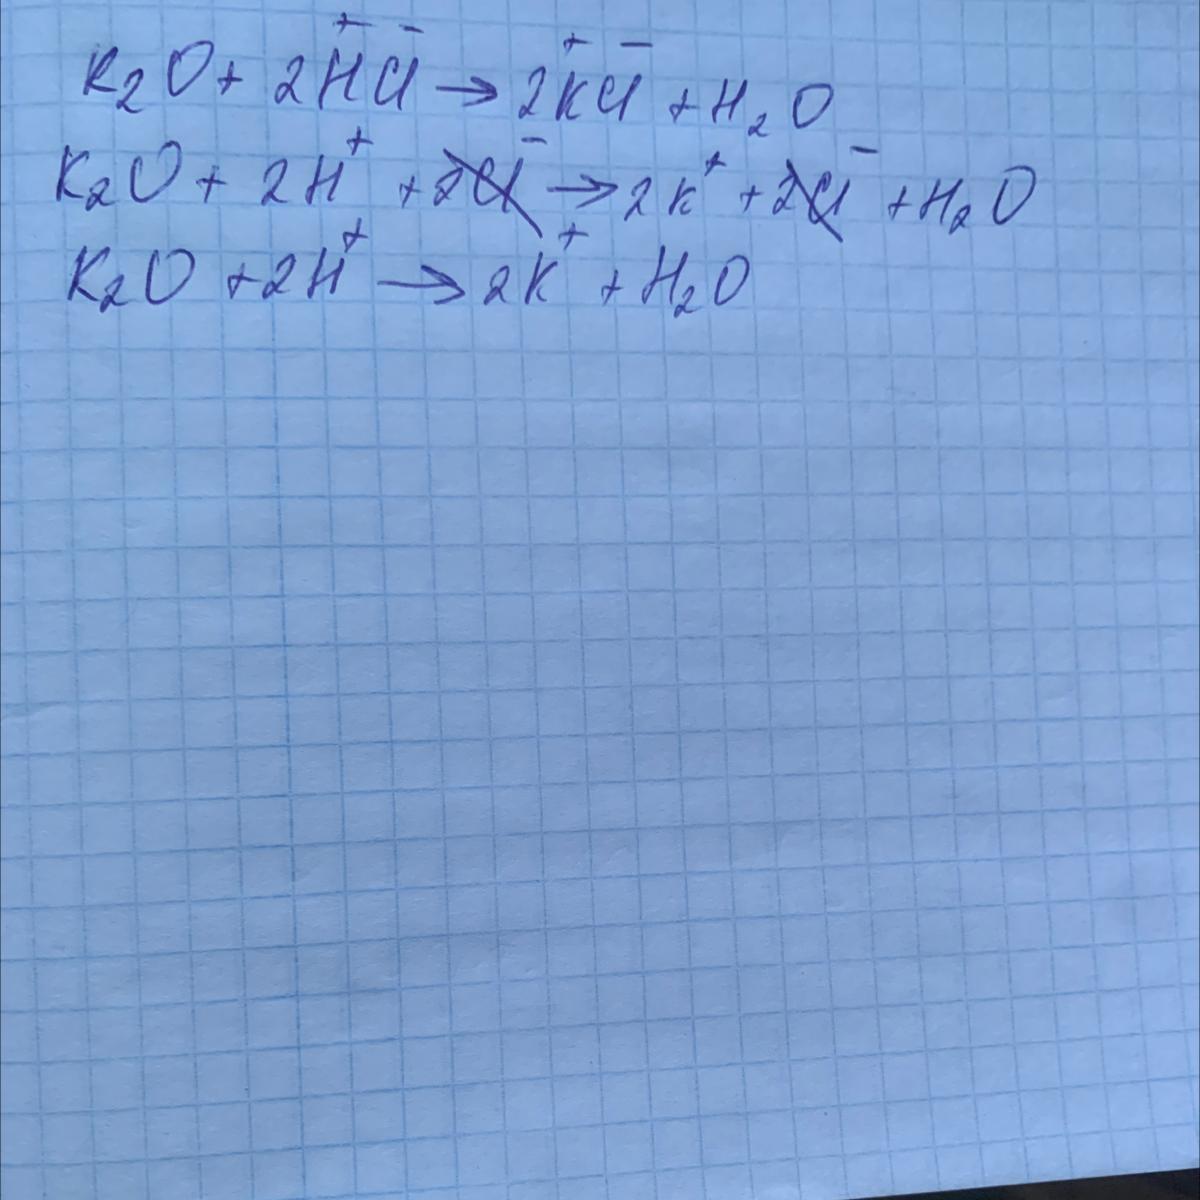 K₂O + 2H⁺Cl⁻ → 2K⁺Cl⁻ + H₂O
K₂O + 2H⁺ + 2Cl⁻ → 2K⁺ + 2Cl⁻ + H₂O
K₂O + 2H⁺ → 2K⁺ + H₂O